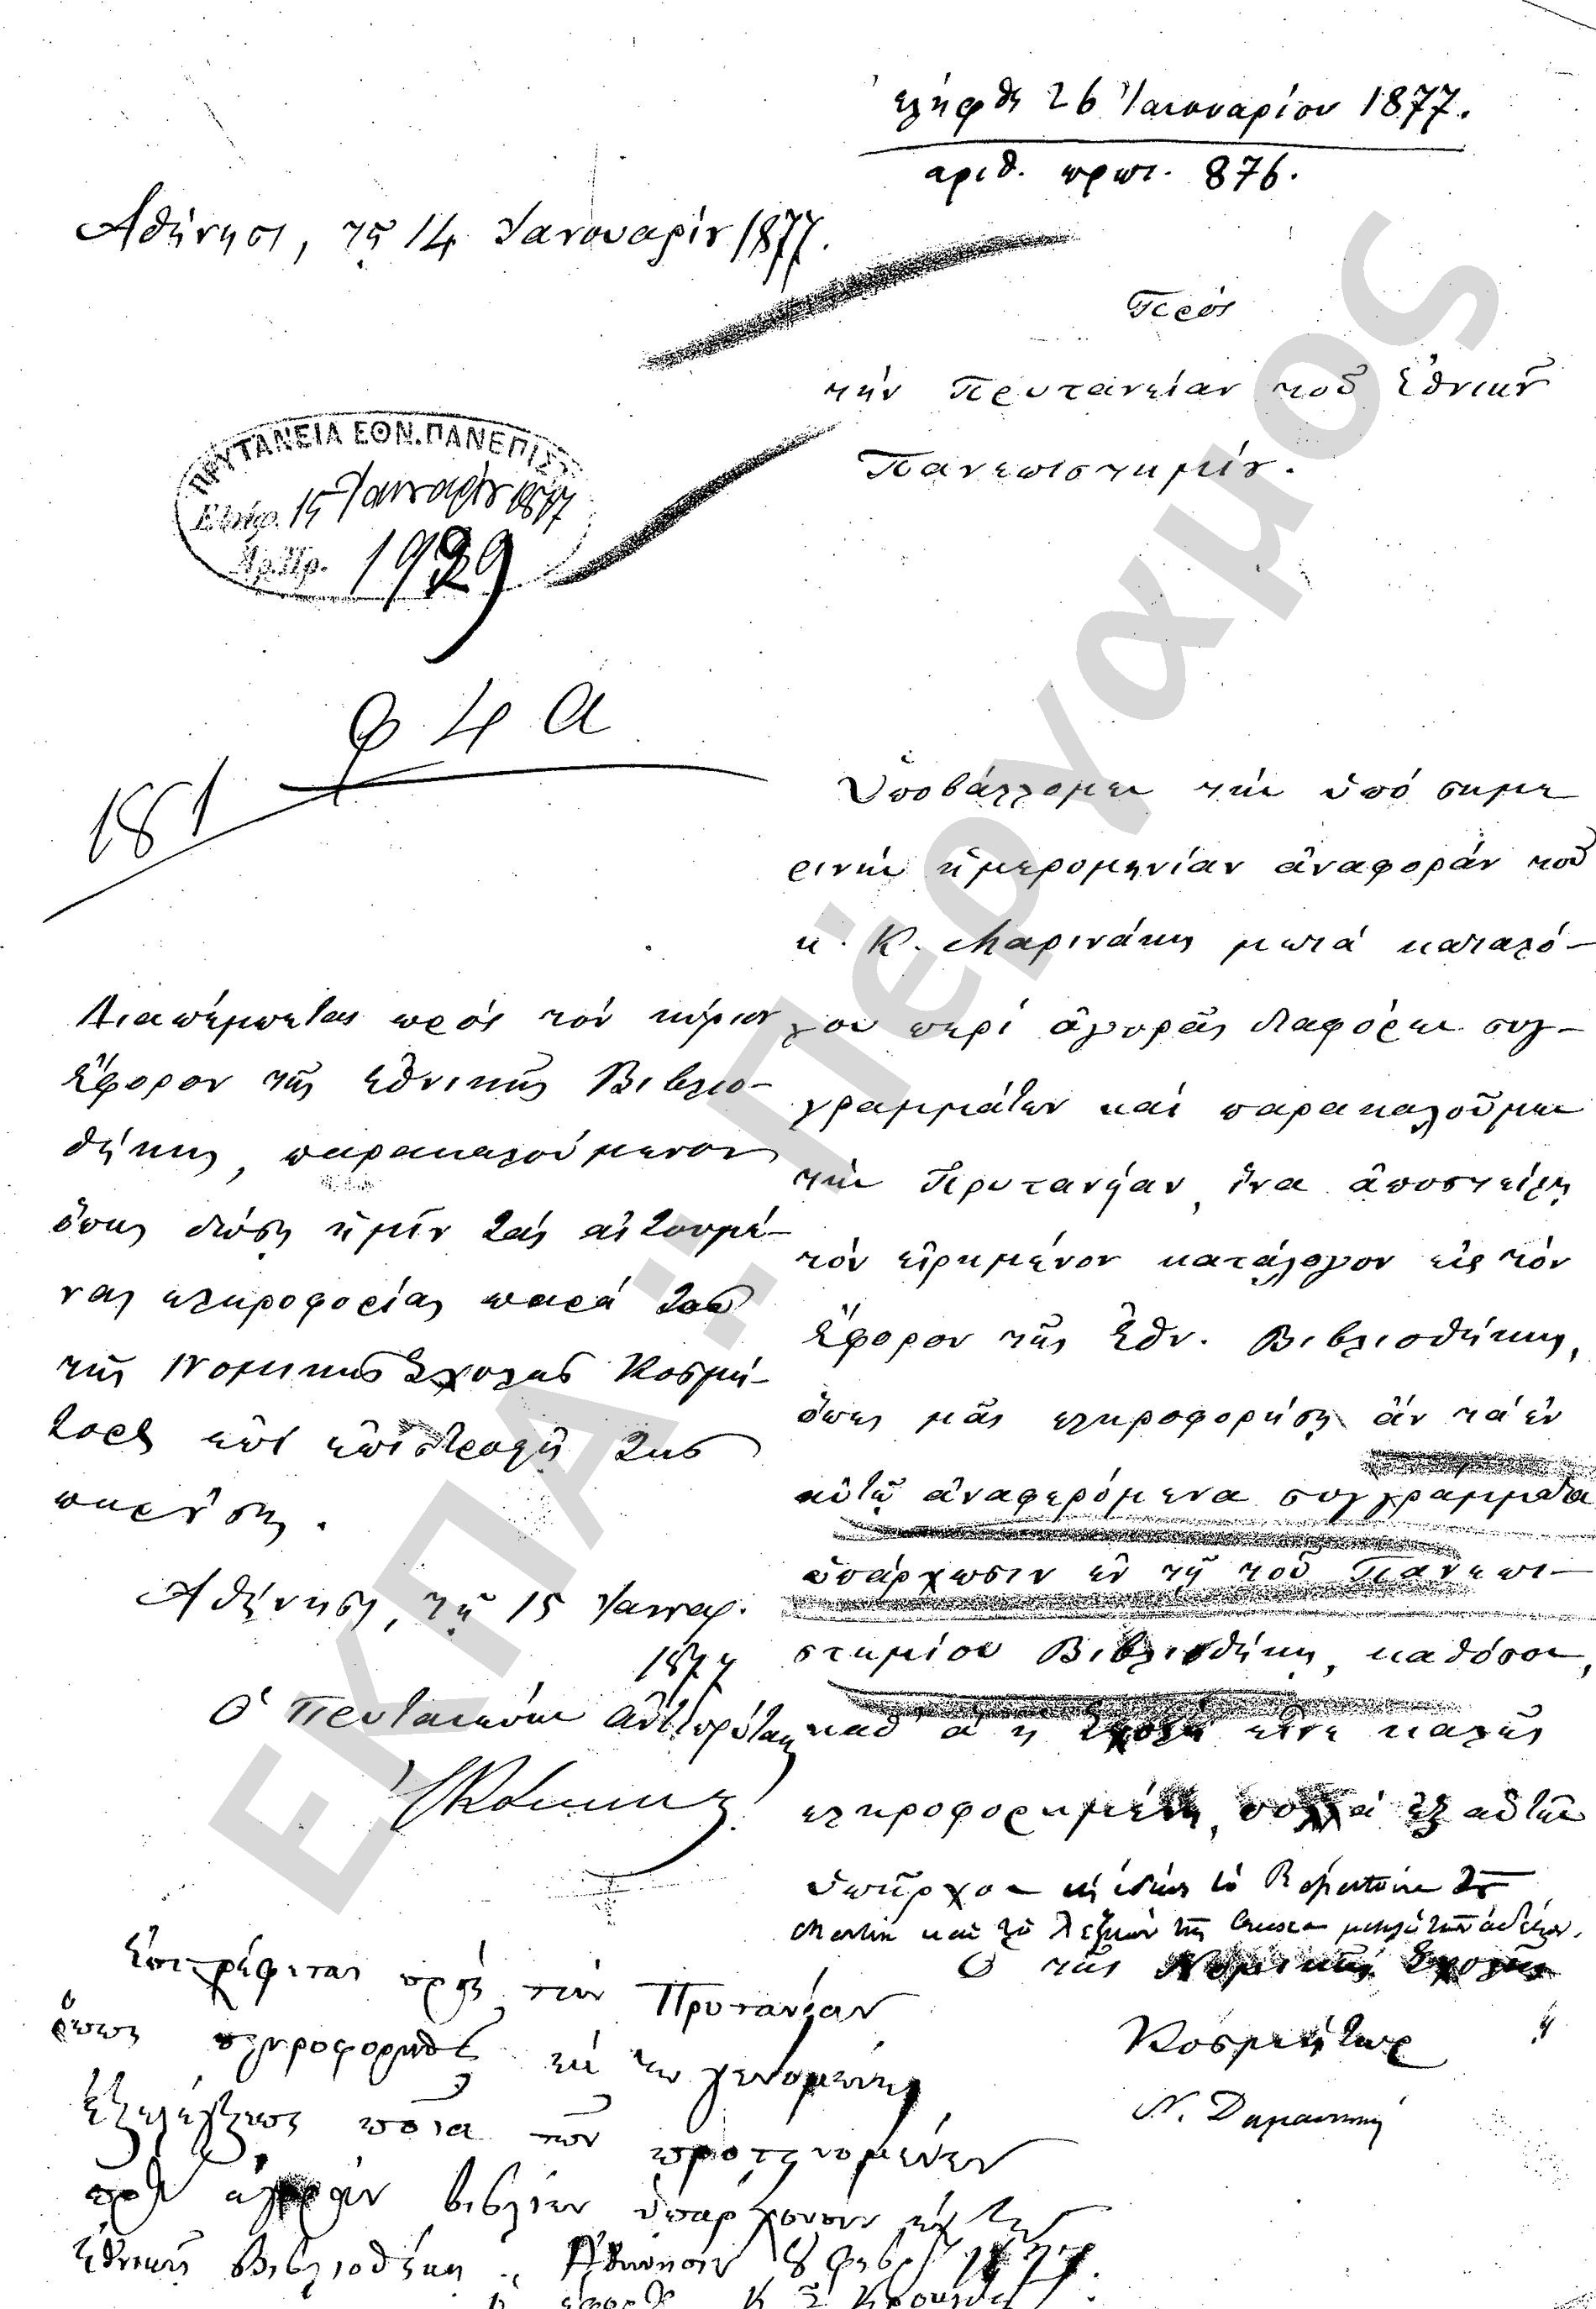 ἐλήφθη 26 Ἰανουαρίου 1877.
αριθ. πρωτ. 876.
Ἀθήνησι, τῇ 14 Ἰανουαρίου 1877.
Πρὸς
τὴν Πρυτανείαν τοῦ Ἐθνικοῦ
Πανεπιστημίου.
ΠΡΥΤΑΝΕΙΑ ΕΘΝ. ΠΑΝΕΠΙΣΤ
Ελήφ. 15 Ἰανουαρίου 1877
Ἀρ. Πρ. 1939
Φ 4 α
181
Ὑποβάλλομεν τὴν ὑπὸ σημε
ρινὴν ἡμερομηνίαν ἀναφορὰν τοῦ
κ. Κ. Μαρινάκη μετὰ καταλό-
γου περὶ ἀγορᾶς διαφόρων συγ-
γραμμάτων καὶ παρακαλοῦμεν
τὴν Πρυτανείαν, ἵνα ἀποστείλῃ
τὸν εἰρημένον κατάλογον εἰς τὸν
Ἔφορον τῆς Ἐθν. Βιβλιοθήκης,
ὅπως μᾶς πληροφορήσῃ ἂν τὰ ἐν
αὐτῷ ἀναφερόμενα συγγράμματα
ὑπάρχωσιν ἐν τῇ τοῦ Πανεπι-
στημίου Βιβλιοθήκῃ, καθόσον,
καθ' ἃ ἡ Σχολὴ εἶνε καλῶς
πληροφορημένη, πολλὰ ἐξ αὐτῶν
ὑπάρχουν
καὶ τὸ Λεξικὸν τῆς
Ὁ τῆς Νομικῆς Σχολῆς
Κοσμήτωρ
Ν. Δαμασκηνός
Διαπέμπεται πρὸς τὸν κύριον
Ἔφορον τῆς Ἐθνικῆς Βιβλιο-
θήκης, παρακαλούμενον
ὅπως δώσῃ ἡμῖν τὰς αἰτουμέ-
νας πληροφορίας παρὰ τοῦ
τῆς Νομικῆς Σχολῆς Κοσμή-
τορος ἐπὶ ἐπιστροφῇ τῆς
παρούσης.
Ἀθήνησι, τῇ 15 Ἰανουαρ.
1877
Ὁ Πρυτανεύων Ἀντιπρύτανις
Ἐπιστρέφεται πρὸς τὴν Πρυτανείαν
ὅπως πληροφορηθῇ ἐκ τῆς γενομένης
ἐξελέγξεως ποῖα τῶν προτεινομένων
πρὸς ἀγορὰν βιβλίων ὑπάρχουσιν ἐν τῇ
Ἐθνικῇ Βιβλιοθήκῃ. Ἀθήνησιν 8 Φεβρ. 1877.
ΕΚΠΑ: Πέργαμος